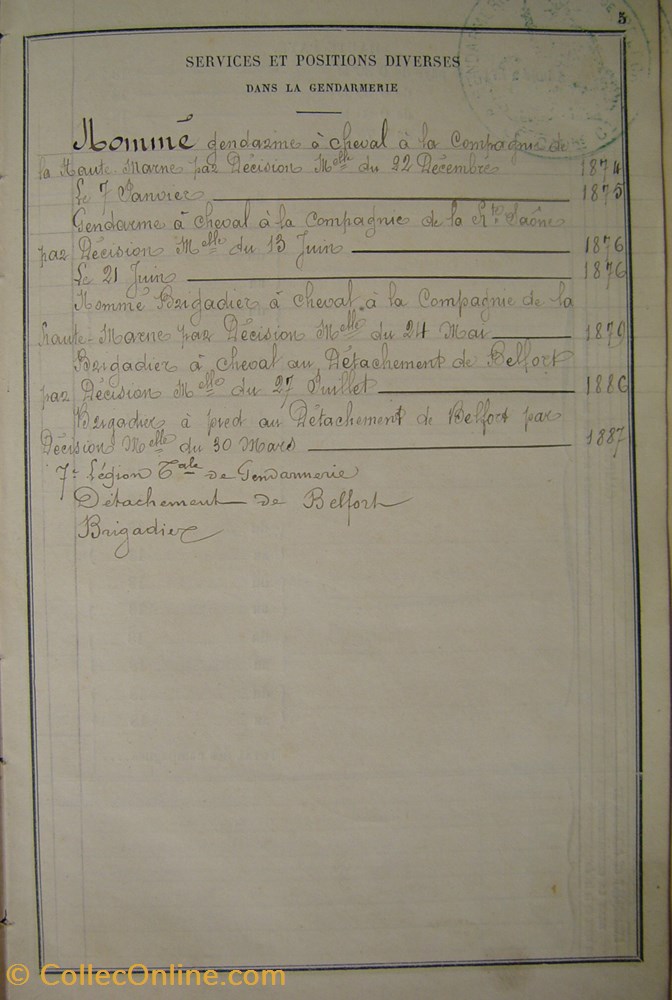 5
SERVICES ET POSITIONS DIVERSES
DANS LA GENDARMERIE
Nommé gendarme à cheval à la Compagnie de
la Haute Marne par Décision Melle du 22 Décembre 1874
Le 7 Janvier 1875
Gendarme à cheval à la Compagnie de la Hte Saône
par Décision Melle du 13 Juin 1876
Le 21 Juin 1876
Nommé Brigadier à cheval à la Compagnie de la
Haute-Marne par Décision Melle du 24 Mai 1879
Brigadier à cheval au Détachement de Belfort
par Décision Melle du 27 Juillet 1886
Brigadier à pied au Détachement de Belfort par
Décision Melle du 30 Mars 1887
7e Légion Tale de Gendarmerie
Détachement de Belfort
Brigadier
© CollecOnline.com